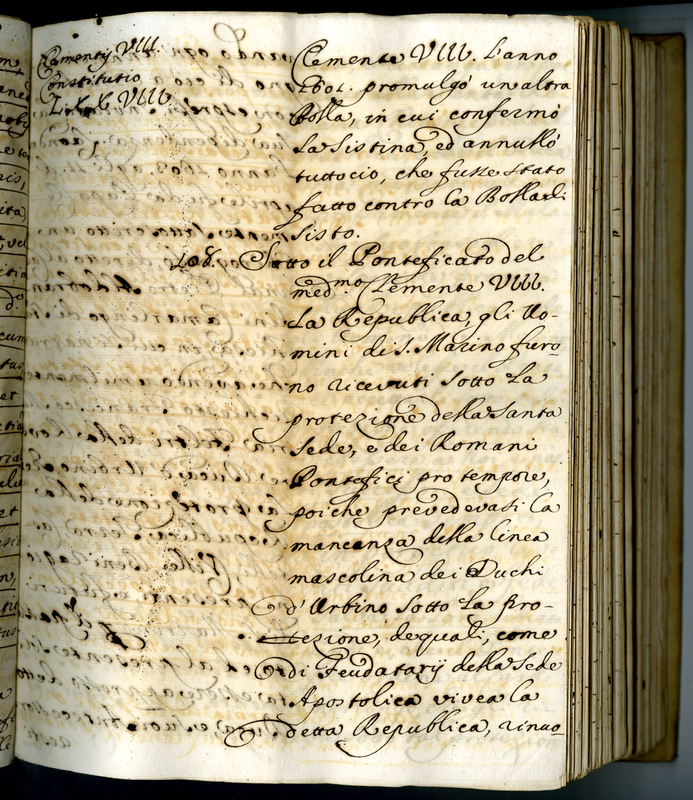 Clementij VIII.
Constitutio
L. X. X VIII
Clemente VIII. L'anno
1601. promulgò un'altra
Bolla, in cui confermò
La Sistina, ed annullò
tuttociò, che fusse stato
fatto contro la Bolla di
Sisto.
108. Sotto il Ponteficato del
med.mo Clemente VIII.
La Republica, gli Uo-
mini di S. Marino furo-
no ricevuti sotto La
protezione della Santa
Sede, e dei Romani
Pontefici pro tempore,
poiche prevedevasi la
mancanza della linea
mascolina dei Duchi
d'Urbino sotto La Pro-
tezione, de quali, come
di Feudatarij della Sede
Apostolica vivea la
detta Republica, rinuo-